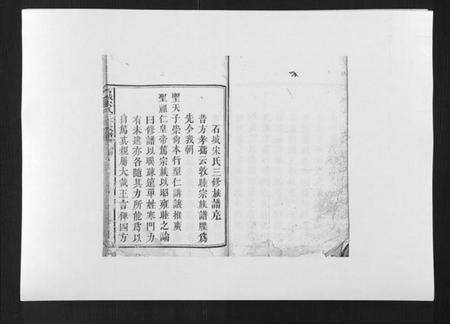 石城宋氏三修族譜序
昔方孝孺云敦睦宗族譜牒爲
先今我朝
聖天子崇尚本行至仁講讓推廣
聖祖仁皇帝篤宗族以昭雍睦之諭
曰修譜以聯疎遠單姓寒門力
有未逮亦各隨其力所能爲以
自篤其親屬大哉王言